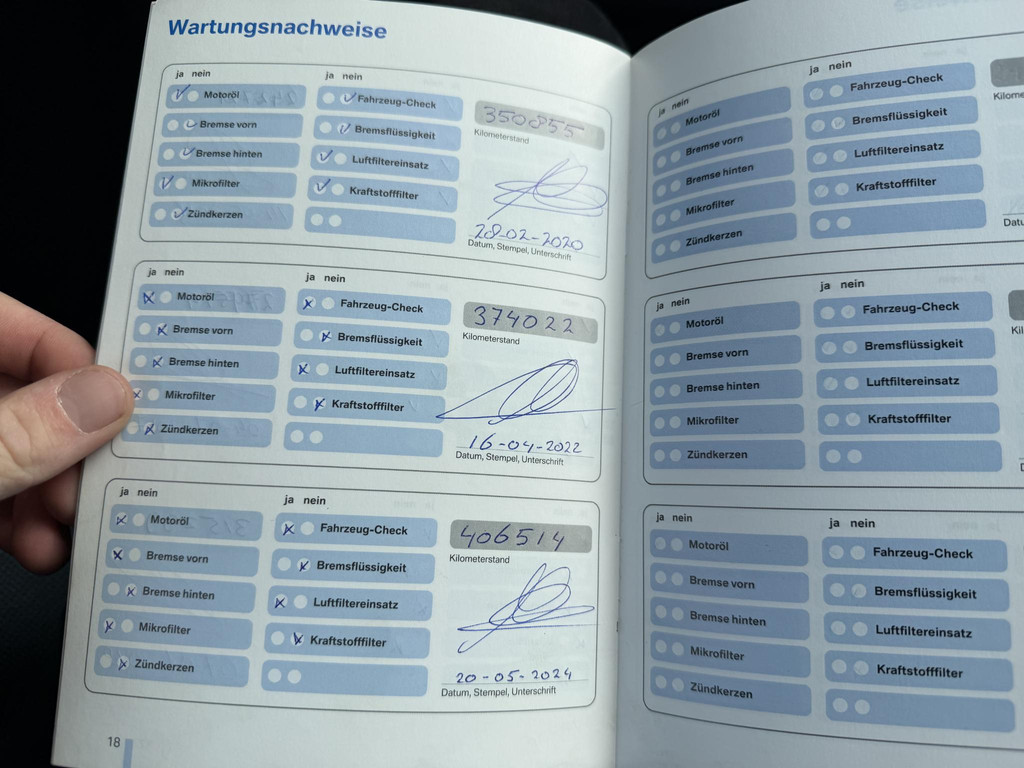 Wartungsnachweise
ja nein
Motoröl
Bremse vorn
Bremse hinten
Mikrofilter
Zündkerzen
ja nein
Fahrzeug-Check
Bremsflüssigkeit
Luftfiltereinsatz
Kraftstofffilter
350855
Kilometerstand
28-02-2020
Datum, Stempel, Unterschrift
ja nein
Motoröl
Bremse vorn
Bremse hinten
Mikrofilter
Zündkerzen
ja nein
Fahrzeug-Check
Bremsflüssigkeit
Luftfiltereinsatz
Kraftstofffilter
374022
Kilometerstand
16-04-2022
Datum, Stempel, Unterschrift
ja nein
Motoröl
Bremse vorn
Bremse hinten
Mikrofilter
Zündkerzen
ja nein
Fahrzeug-Check
Bremsflüssigkeit
Luftfiltereinsatz
Kraftstofffilter
406514
Kilometerstand
20-05-2024
Datum, Stempel, Unterschrift
18
ja nein
Motoröl
Bremse vorn
Bremse hinten
Mikrofilter
Zündkerzen
ja nein
Fahrzeug-Check
Bremsflüssigkeit
Luftfiltereinsatz
Kraftstofffilter
ja nein
Motoröl
Bremse vorn
Bremse hinten
Mikrofilter
Zündkerzen
ja nein
Fahrzeug-Check
Bremsflüssigkeit
Luftfiltereinsatz
Kraftstofffilter
ja nein
Motoröl
Bremse vorn
Bremse hinten
Mikrofilter
Zündkerzen
ja nein
Fahrzeug-Check
Bremsflüssigkeit
Luftfiltereinsatz
Kraftstofffilter